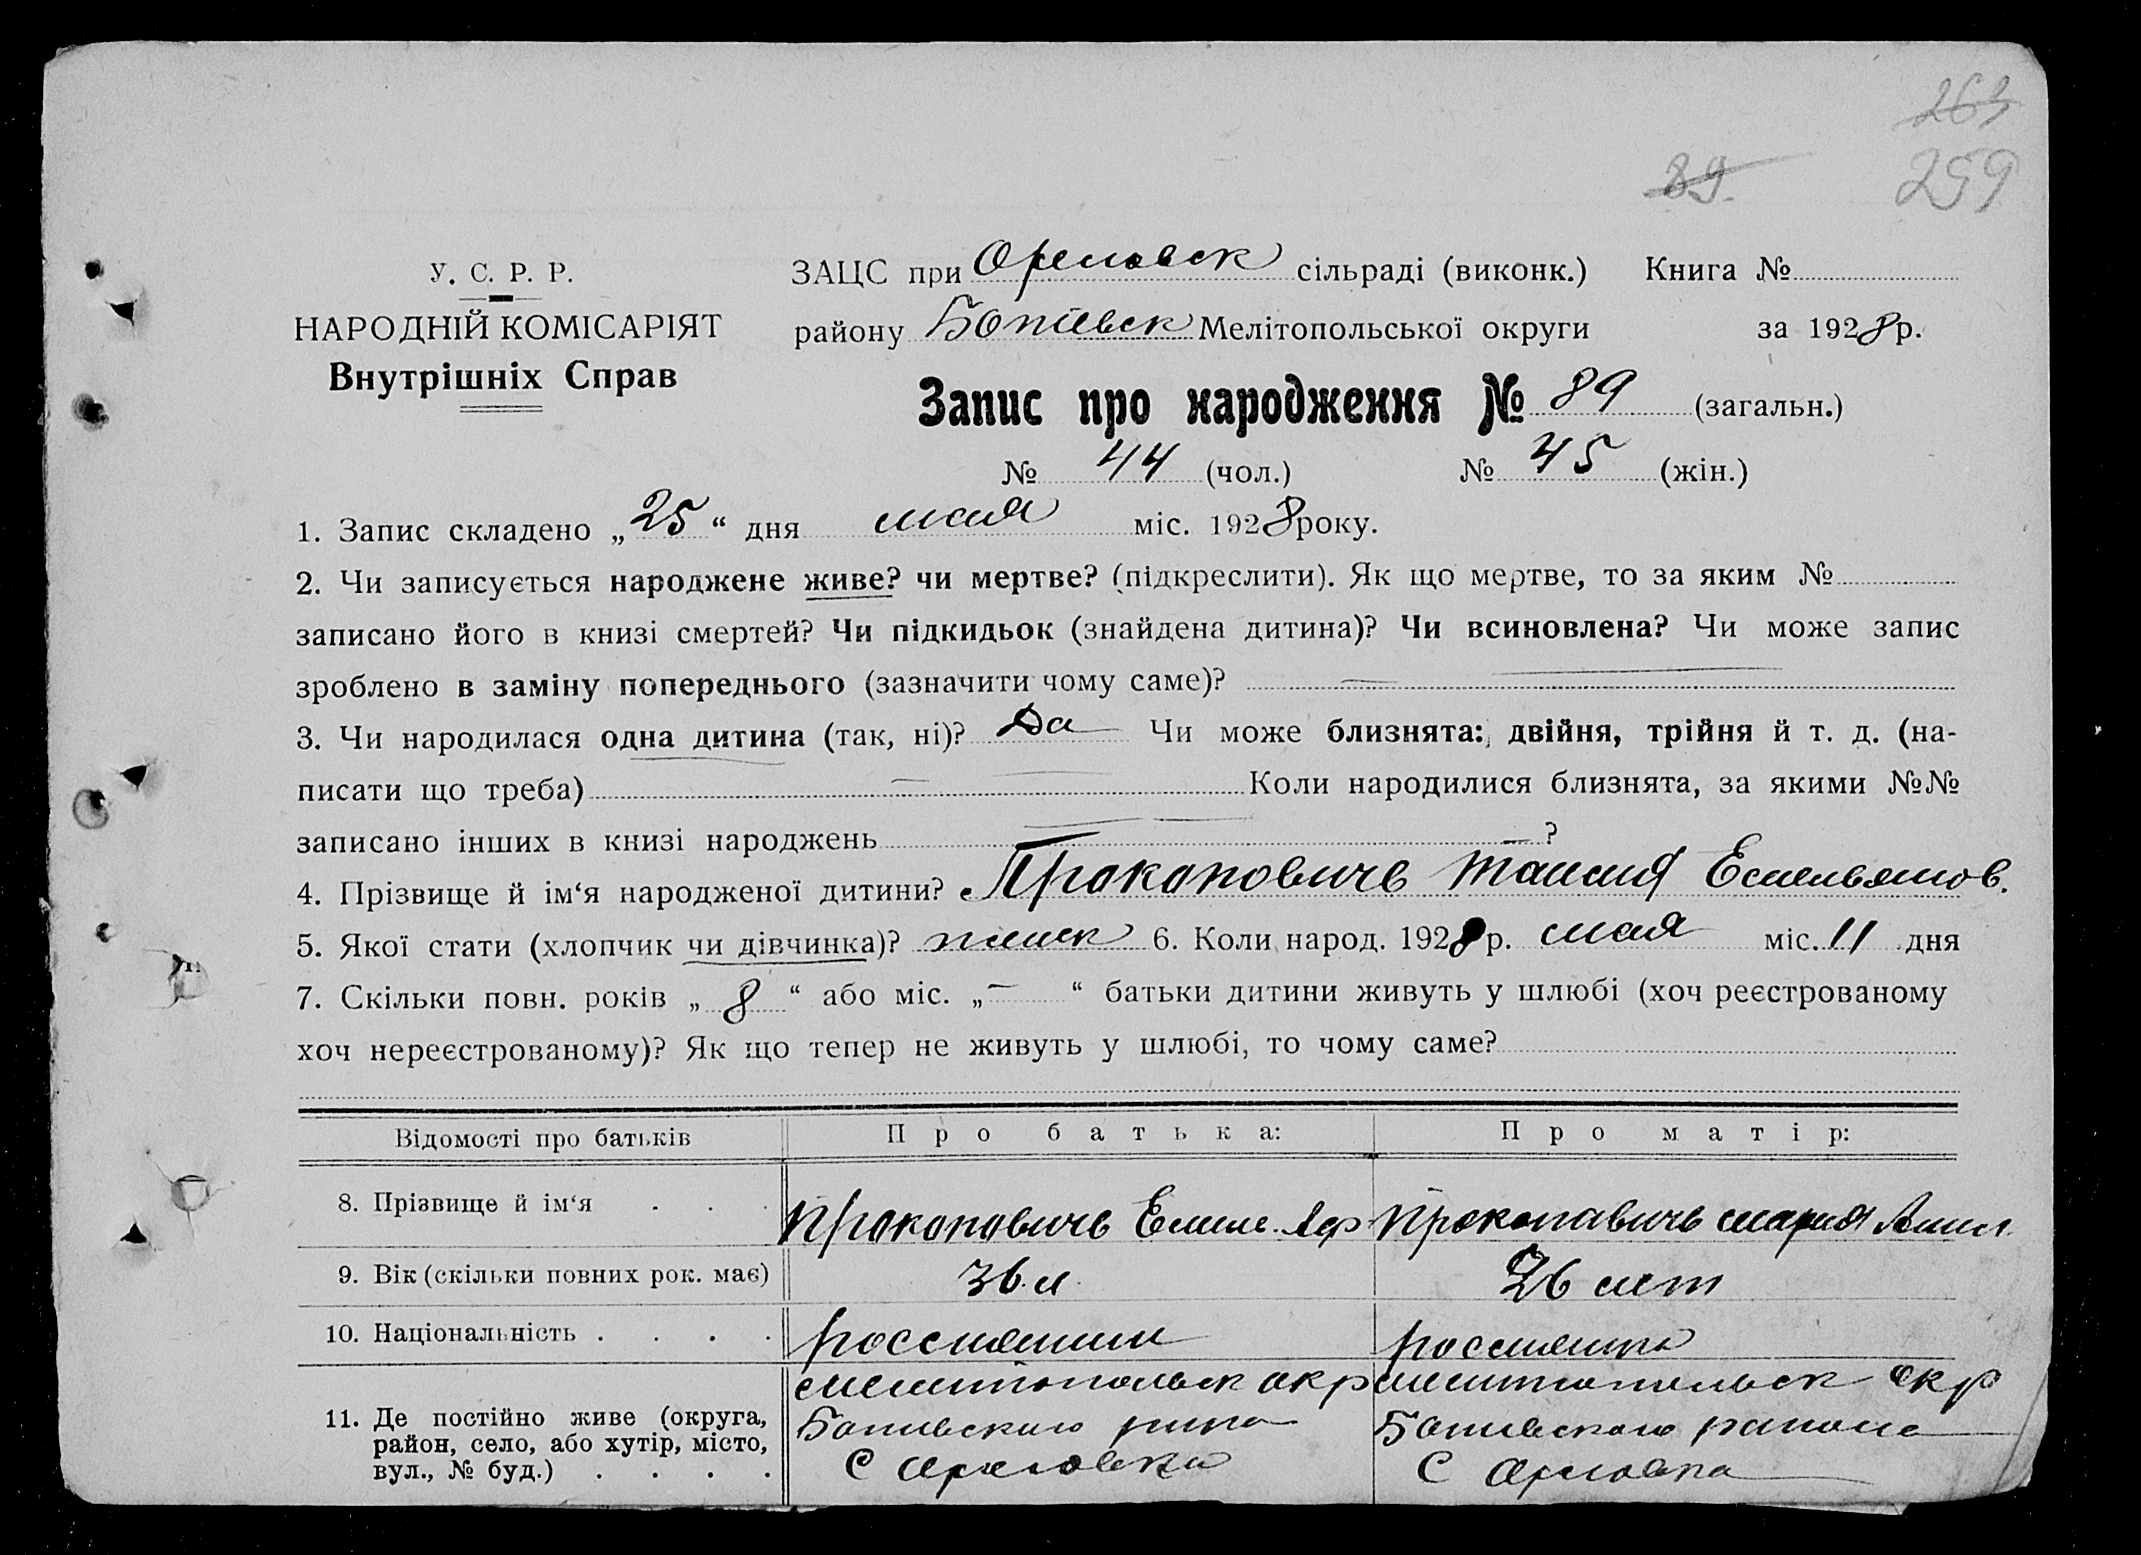 263
89.
259
У. С. Р. Р.
НАРОДНІЙ КОМІСАРІЯТ
Внутрішніх Справ
ЗАЦС при Орловск сільраді (виконк.) Книга №
району Ботіевск Мелітопольської округи за 1928 р.
Запис про народження № 89 (загальн.)
№ 44 (чол.) № 45 (жін.)
1. Запис складено „25“ дня мая міс. 1928 року.
2. Чи записується народжене живе? чи мертве? (підкреслити). Як що мертве, то за яким №
записано його в книзі смертей? Чи підкидьок (знайдена дитина)? Чи всиновлена? Чи може запис
зроблено в заміну попереднього (зазначити чому саме)? —
3. Чи народилася одна дитина (так, ні)? Да Чи може близнята: двійня, трійня й т. д. (на-
писати що треба) — Коли народилися близнята, за якими №№
записано інших в книзі народжень — ?
4. Прізвище й ім‘я народженої дитини? Прокоповичь Таисия Емельянов.
5. Якої стати (хлопчик чи дівчинка)? женск 6. Коли народ. 1928 р. мая міс. 11 дня
7. Скільки повн. років „8“ або міс. „—“ батьки дитини живуть у шлюбі (хоч реєстрованому
хоч нереєстрованому)? Як що тепер не живуть у шлюбі, то чому саме?
Відомості про батьків Про батька: Про матір:
8. Прізвище й ім‘я . . . Прокоповичь Емел. Аф Прокопавичь Мария
9. Вік (скільки повних рок. має) 36 л. 26 лет
10. Національність . . . . россиянин россиянка
11. Де постійно живе (округа, Мелитопольск окр Мелитопольск окр
район, село, або хутір, місто, Ботиевского Ботиевского района
вул., № буд.) . . . . С Орловка С Орловка